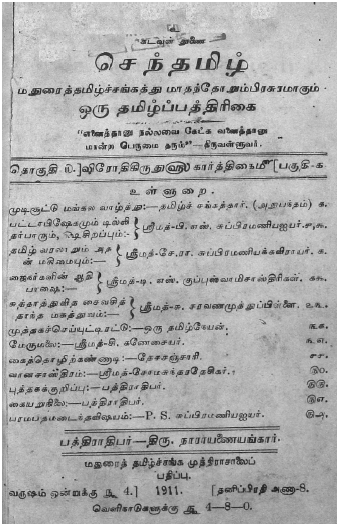 உ
கடவுள் துணை
செந்தமிழ்
மதுரைத்தமிழ்ச்சங்கத்து மாதந்தோறும்பிரசுரமாகும்
ஒரு தமிழ்ப்பத்திரிகை
"எனைத்தானு நல்லவை கேட்க வனைத்தானு
மான்ற பெருமை தரும்"—திருவள்ளுவர்.
தொகுதி ௰.] விரோதிகிருதுஹ கார்த்திகைமீ [பகுதி-௧
உள்ளுறை.
முடிசூட்டு மங்கல வாழ்த்து:—தமிழ்ச் சங்கத்தார். (அநுபந்தம்) ௧.
பட்டாபிஷேகமும் டில்லி தர்பாரும், ஒ
ஸ்ரீமத்-பி. எஸ். சுப்பிரமணியஐயர்.
தமிழ் வரலாறும் அத ன் மகிமையும்:—
ஸ்ரீமத்-சே.ரா. சுப்பிரமணியக்கவிராயர். ௧.
ஜைநர்களின் ஆதி பாஷை:—
ஸ்ரீமத்-டி. எஸ். குப்புஸ்வாமிசாஸ்திரிகள். ௧௧.
சுத்தாத்துவித சைவசித் தாந்த மகத்துவம்:—
ஸ்ரீமத்-சு. சரவணமுத்துப்பிள்ளை. ௨௩.
முத்தகச்செய்யுட்டிரட்டு:—ஒரு தமிழ்நேயன். ௩௧.
மேருமலை:—ஸ்ரீமதி-சி. கணேசையர். ௩௭.
கைத்தொழிற்கண்ணாடி:—தேசசஞ்சாரி. ௪௪.
வானசாஸ்திரம்:—ஸ்ரீமத்-சோமசுந்தரதேசிகர். ௫௦.
புத்தகக்குறிப்பு:—பத்திராதிபர். ௫௫.
கையறுநிலை:—பத்திராதிபர். ௫௭.
பரமபதமடைந்தவிஷயம்:—P. S. சுப்பிரமணியஐயர். ௫௮.
பத்திராதிபர்—திரு. நாராயணையங்கார்.
மதுரைத் தமிழ்ச்சங்க முத்திராசாலைப்
பதிப்பு.
வருஷம் ஒன்றுக்கு ரூ 4.] 1911. [தனிப்பிரதி அணா-8.
வெளிநாடுகளுக்கு ரூ 4—8—0.